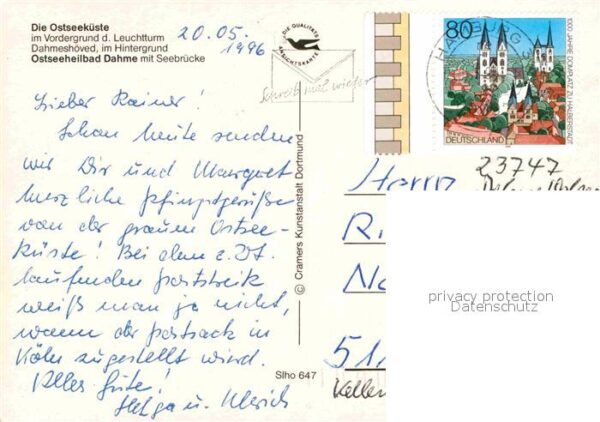 Die Ostseeküste
im Vordergrund d. Leuchtturm
Dahmeshöved, im Hintergrund
Ostseeheilbad Dahme mit Seebrücke
20.05.
1996
DIE QUALITÄTS
ANSICHTSKARTE
Schreib mal wieder
80
HAMBURG
1000 JAHRE DOMPLATZ ZU HALBERSTADT
DEUTSCHLAND
Lieber Rainer!
Schon heute senden
wir Dir und Margret
herzliche Pfingstgrüße
von der grauen Ostsee-
küste! Bei dem z. Zt.
laufenden Poststreik
weiß man ja nicht,
wann der Postsack in
Köln zugestellt wird.
Alles Gute!
Helga u. Ulrich
© Cramers Kunstanstalt Dortmund
Slho 647
23747
Herrn
R
No
51
privacy protection
Datenschutz